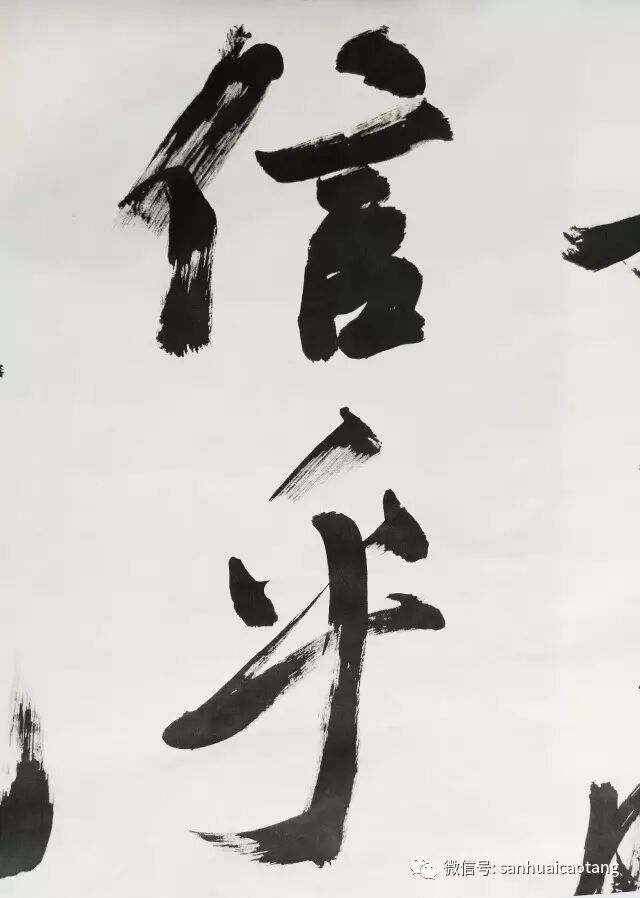 信乎
微信号: sanhuaicaotang